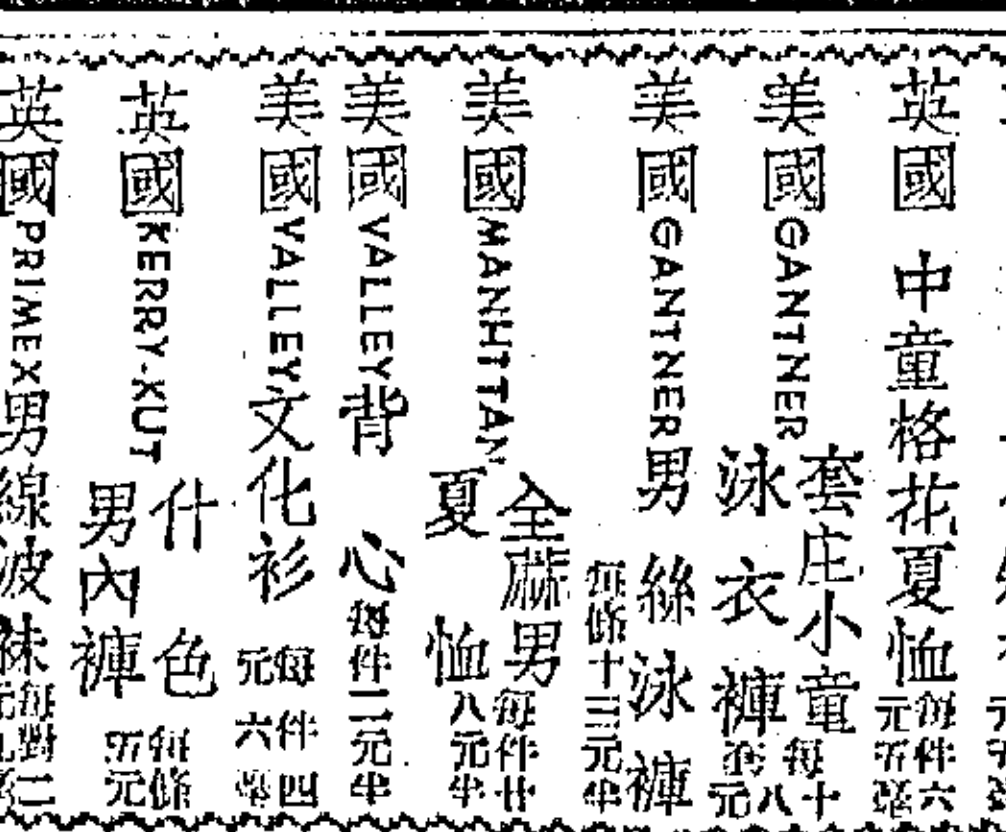 英國 中童格花夏恤 每件六元五毫
美國GANTNER 套庄小童泳衣褲 每套十八元
美國GANTNER男絲泳褲 每條十三元半
美國MANHTTAN 全蔴男夏恤 每件廿八元半
美國VALLEY背心 每件二元半
美國VALLEY文化衫 每件四元六毫
英國KERRY-KUT 什色男內褲 每條五元
英國PRIMEX男線波袜 每對二元